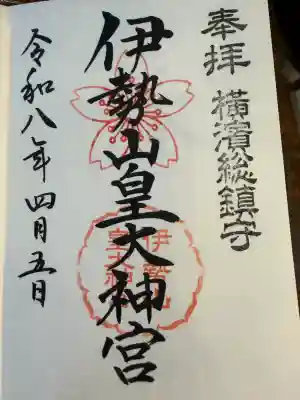 奉拝 横濱総鎮守
伊勢山皇大神宮
伊勢山
皇大神宮
令和八年四月五日